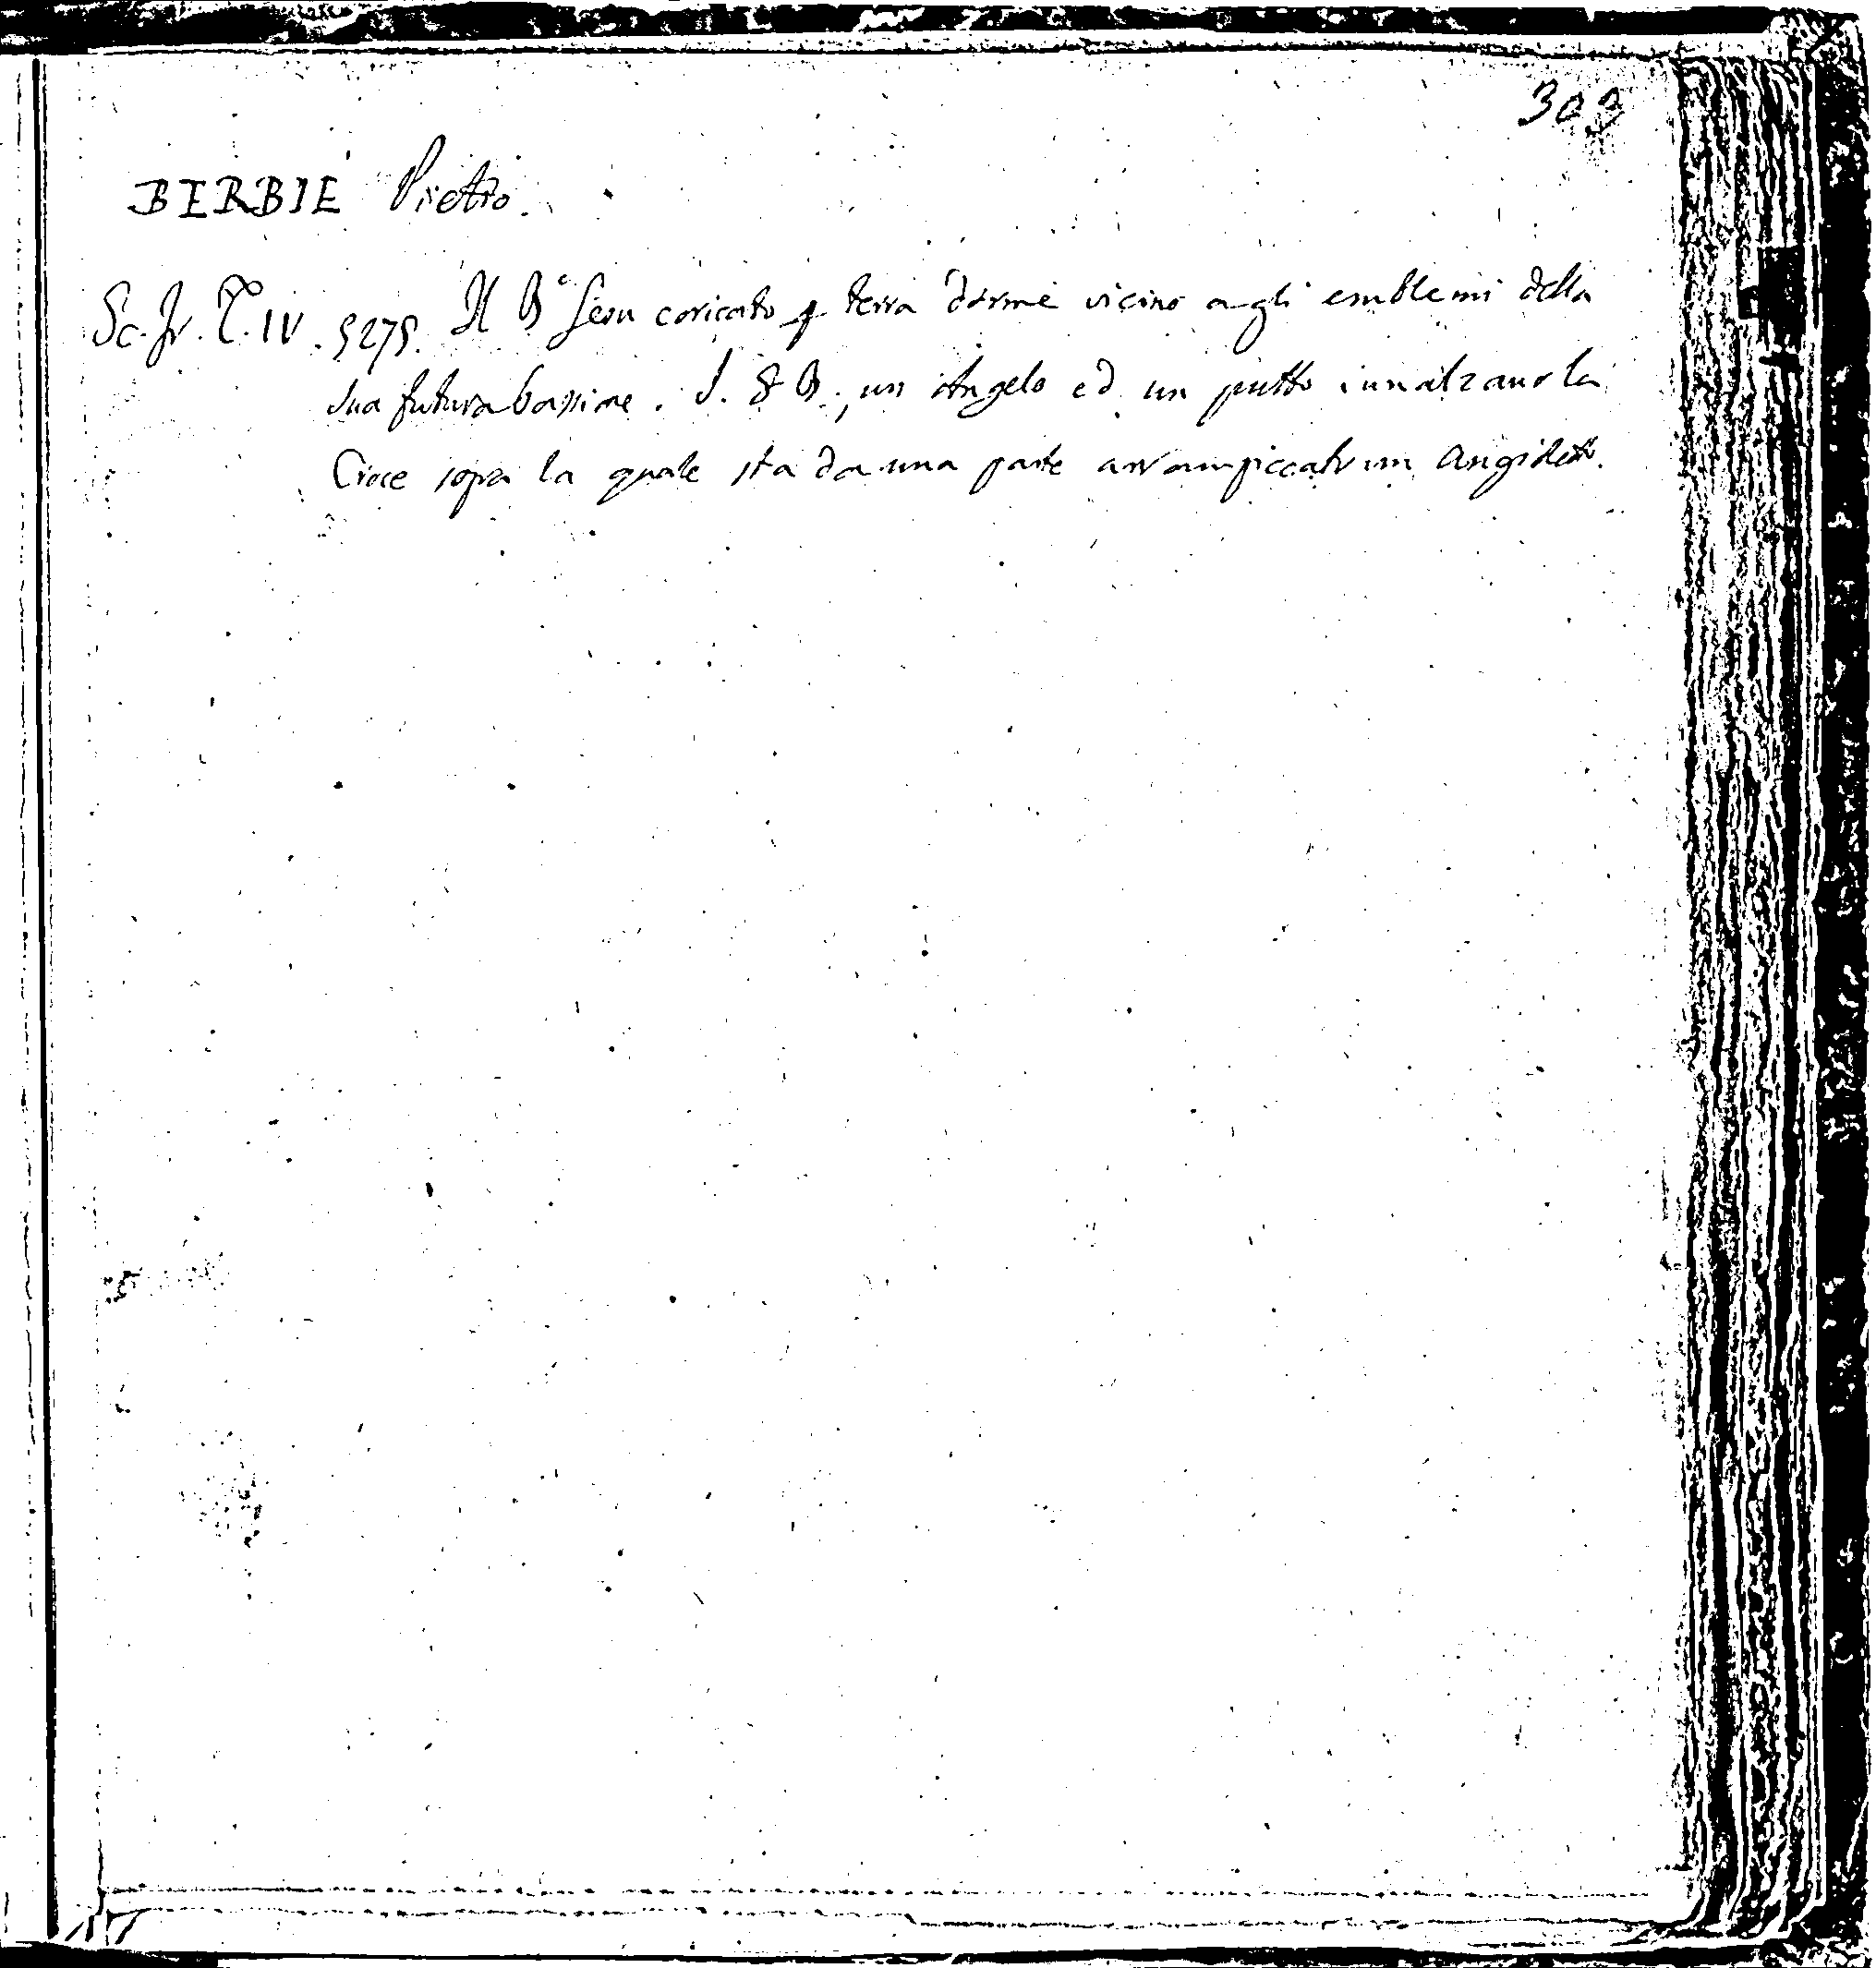 303
BERBIE Pietro.
Sc. Fr. T. IV. 5275. Il B.º Gesu coricato p terra dorme vicino agli emblemi della
sua futura Passione. I. & B., un Angelo ed un putto innalzano la
Croce sopra la quale sta da una parte arrampiccato un Angioletto.